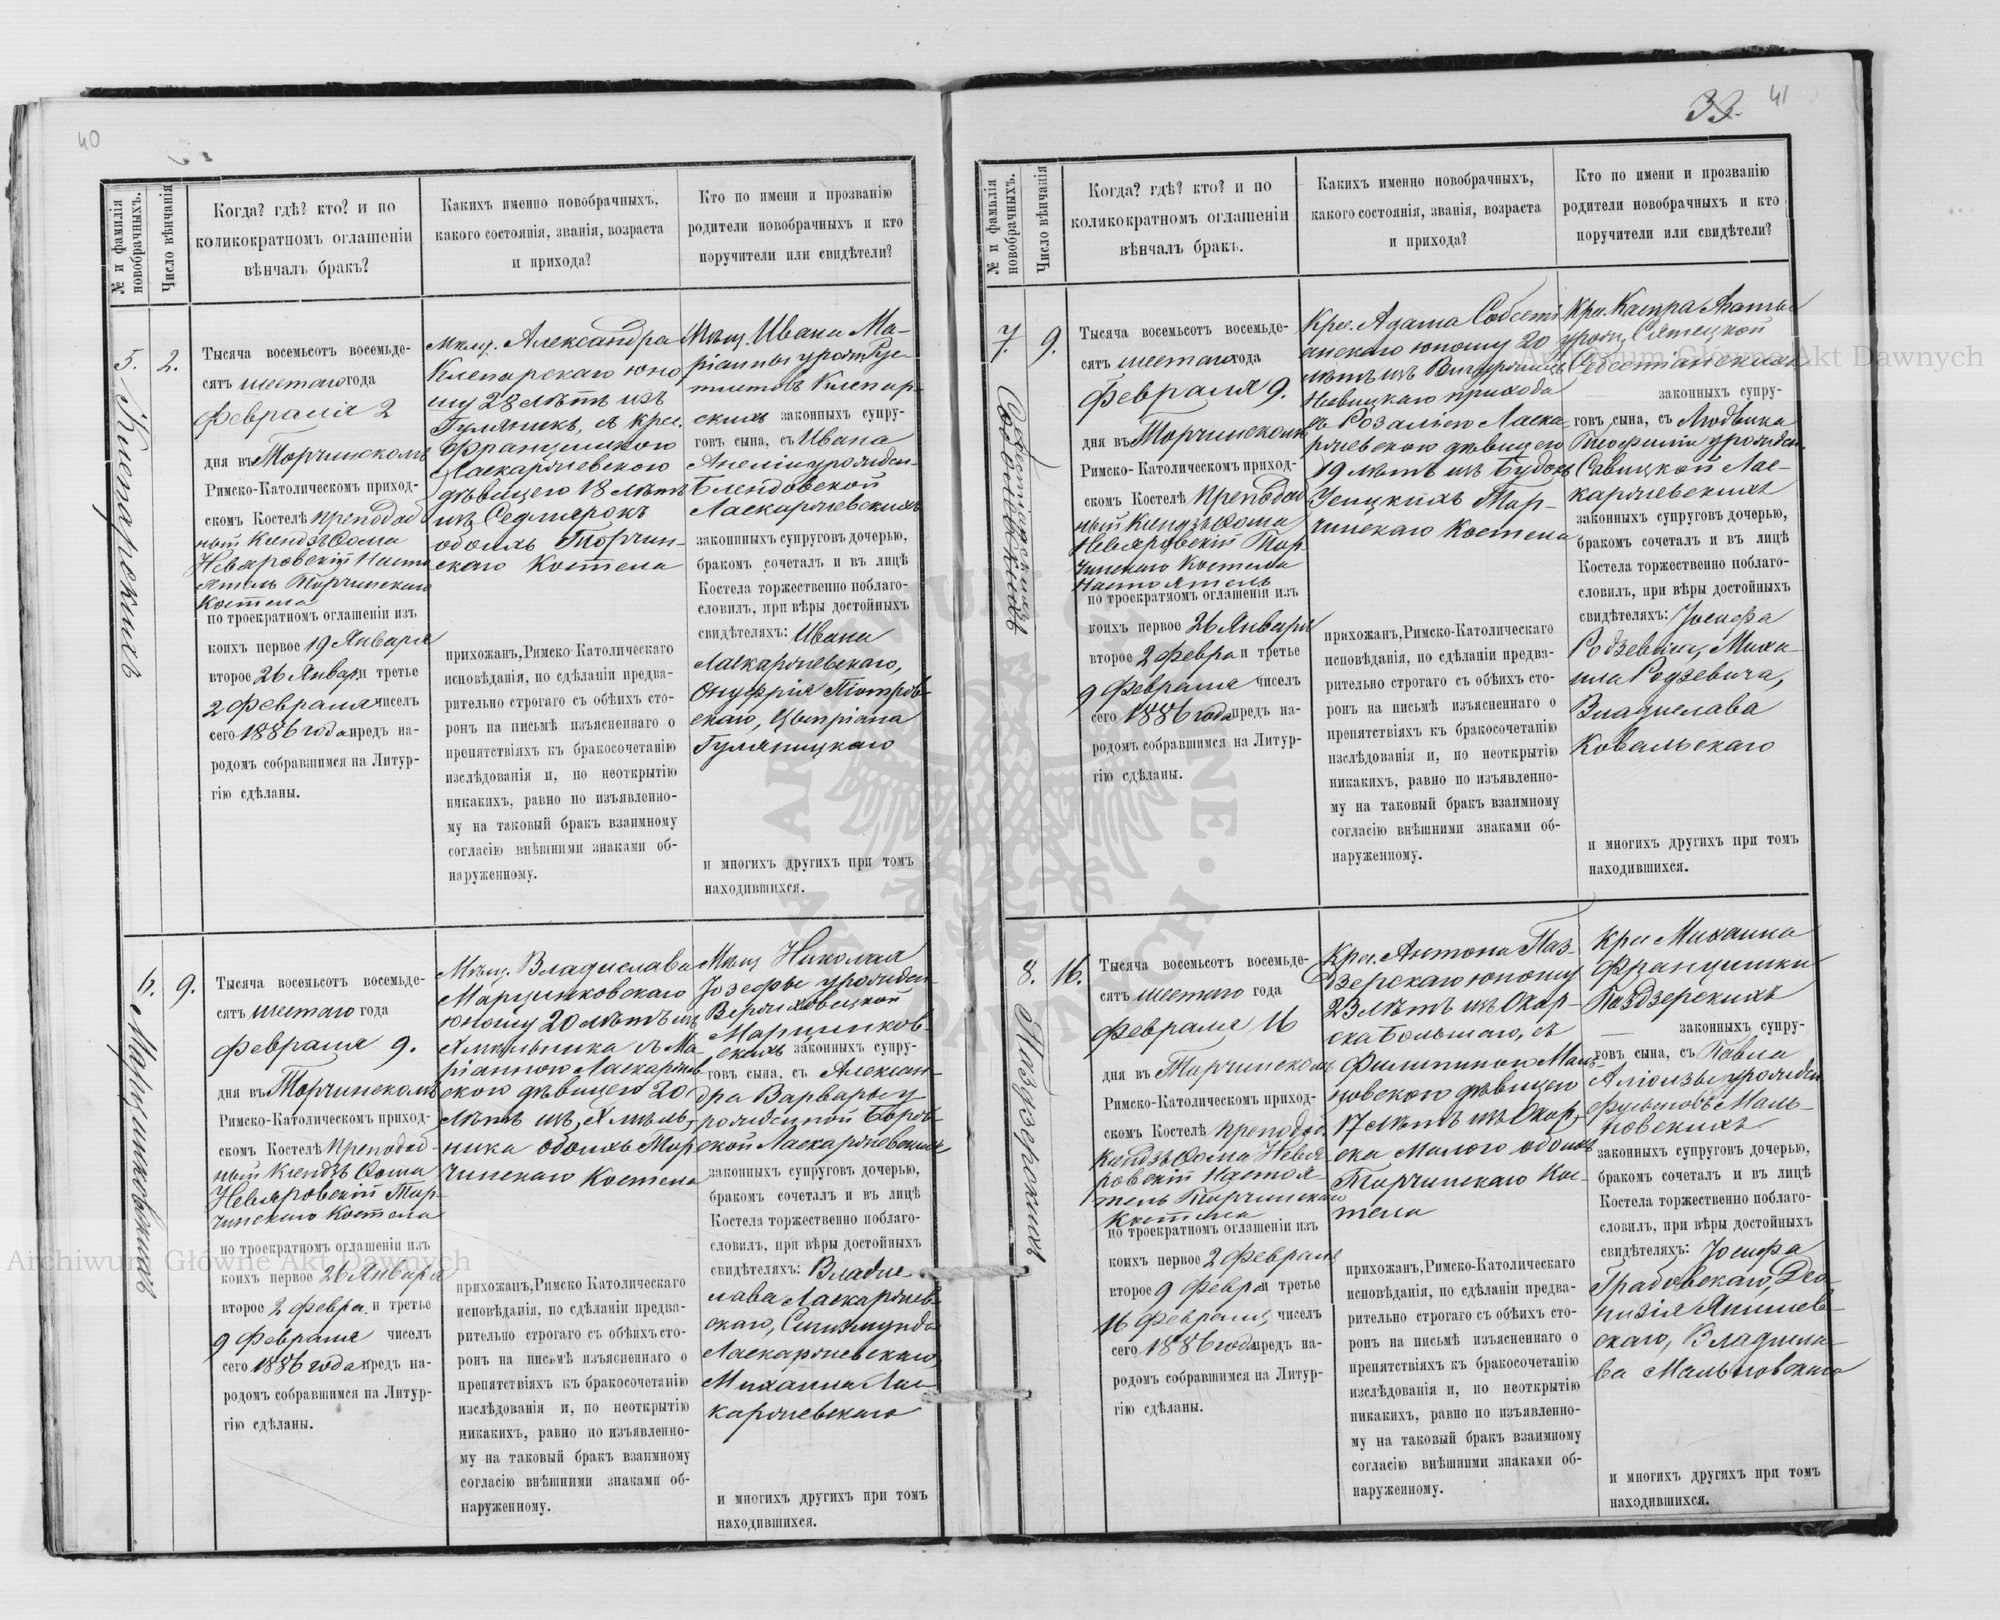 40
№ и фамилія новобрачныхъ.
Число вѣнчанія
Когда? гдѣ? кто? и по
коликократномъ оглашеніи
вѣнчалъ бракъ?
Какихъ именно новобрачныхъ,
какого состоянія, званія, возраста
и прихода?
Кто по имени и прозванію
родители новобрачныхъ и кто
поручители или свидѣтели?
5.
2.
Тысяча восемьсотъ восемьде-
сятъ шестаго года
Февраля 2
дня въ Торчинскомъ
Римско-Католическомъ приход-
скомъ Костелѣ преподоб
ный Ксендзъ Фома
Невяровскій Насто
ятель Торчинскаго
Костела
по троекратномъ оглашеніи изъ
коихъ первое 19 Января
второе 26 Январ. и третье
2 Февраля чиселъ
сего 1886 года предъ на-
родомъ собравшимся на Литур-
гію сдѣланы.
Александра
юно
шу 28 лѣтъ изъ
Гулянник, съ крес.
Францишкою
Ласкаржевскою
дѣвицею 18 лѣтъ
изъ Седмярокъ
обоихъ Торчин-
скаго Костела
прихожанъ, Римско-Католическаго
исповѣданія, по сдѣланіи предва-
рительно строгаго съ обѣихъ сто-
ронъ на письмѣ изъясненнаго о
препятствіяхъ къ бракосочетанію
изслѣдованія и, по неоткрытію
никакихъ, равно по изъявленно-
му на таковый бракъ взаимному
согласію внѣшними знаками об-
наруженному.
Мѣщ. Ивана Ма-
ріанны урожд.
скихъ законныхъ супру-
говъ сына, съ Ивана
Анеліи урожден-
Блендовской
Ласкаржевскихъ
законныхъ супруговъ дочерью,
бракомъ сочеталъ и въ лицѣ
Костела торжественно поблаго-
словилъ, при вѣры достойныхъ
свидѣтеляхъ: Ивана
Ласкаржевскаго,
Онуфрія Піотров-
скаго, Ципріана
Гуляницкаго
и многихъ другихъ при томъ
находившихся.
6. Марцинковскихъ
9.
Тысяча восемьсотъ восемьде-
сятъ шестаго года
Февраля 9.
дня въ Торчинскомъ
Римско-Католическомъ приход-
скомъ Костелѣ преподоб-
ный Ксендзъ Фома
Невяровскій Тор-
чинскаго Костела
по троекратномъ оглашеніи изъ
коихъ первое 26 Января
второе 2 Февра. и третье
9 Февраля чиселъ
сего 1886 года предъ на-
родомъ собравшимся на Литур-
гію сдѣланы.
Мѣщ. Владислава
Марцинковскаго
юношу 20 лѣтъ изъ
Хмѣльника съ Ма
ріанною Ласкаржев
скою дѣвицею 20
лѣтъ изъ Хмѣль-
ника обоихъ Тор
чинскаго Костела
прихожанъ, Римско Католическаго
исповѣданія, по сдѣланіи предва-
рительно строгаго съ обѣихъ сто-
ронъ на письмѣ изъясненнаго о
препятствіяхъ къ бракосочетанію
изслѣдованія и, по неоткрытію
никакихъ, равно по изъявленно-
му на таковый бракъ взаимному
согласію внѣшними знаками об-
наруженному.
Мѣщ Николая
Іозефы урожден
Вержховецкой
Марцинков-
скихъ законныхъ супру-
говъ сына, съ Алексан-
дра Варвары у
рожденной
Ласкаржевскихъ
законныхъ супруговъ дочерью,
бракомъ сочеталъ и въ лицѣ
Костела торжественно поблаго-
словилъ, при вѣры достойныхъ
свидѣтеляхъ: Владис
лава Ласкаржев-
скаго, Сигизмунда
Ласкаржевскаго
Михаила Лас-
каржевскаго
и многихъ другихъ при томъ
находившихся.
33.
41
№ и фамилія новобрачныхъ.
Число вѣнчанія
Когда? гдѣ? кто? и по
коликократномъ оглашеніи
вѣнчалъ бракъ.
Какихъ именно новобрачныхъ,
какого состоянія, званія, возраста
и прихода?
Кто по имени и прозванію
родители новобрачныхъ и кто
поручители или свидѣтели?
7.
9.
Тысяча восемьсотъ восемьде-
сятъ шестаго года
Февраля 9.
дня въ Торчинскомъ
Римско-Католическомъ приход-
скомъ Костелѣ преподоб
ный Ксендзъ Фома
Невяровскій Тор-
чинскаго Костела
Настоятель
по троекратномъ оглашеніи изъ
коихъ первое 26 Января
второе 2 Февра и третье
9 Февраля чиселъ
сего 1886 года предъ на-
родомъ собравшимся на Литур-
гію сдѣланы.
Крес. Адама Себестi
анскаго юношу 20
лѣтъ изъ
прихода
съ Розалією Ласка-
ржевскою дѣвицею
19 лѣтъ изъ
Тор-
чинскаго Костела
прихожанъ, Римско-Католическаго
исповѣданія, по сдѣланіи предва-
рительно строгаго съ обѣихъ сто-
ронъ на письмѣ изъясненнаго о
препятствіяхъ къ бракосочетанію
изслѣдованія и, по неоткрытію
никакихъ, равно по изъявленно-
му на таковый бракъ взаимному
согласію внѣшними знаками об-
наруженному.
Крес. Каспра Агаты
урожд.
законныхъ супру-
говъ сына, съ Людвика
Теофиліи урожден.
Савицкой Лас-
каржевскихъ
законныхъ супруговъ дочерью,
бракомъ сочеталъ и въ лицѣ
Костела торжественно поблаго-
словилъ, при вѣры достойныхъ
свидѣтеляхъ: Іосифа
Родзевича, Миха-
ила Родзевича,
Владислава
Ковальскаго
и многихъ другихъ при томъ
находившихся.
8. Паздзерскихъ
16.
Тысяча восемьсотъ восемьде-
сятъ шестаго года
Февраля 16
дня въ Торчинскомъ
Римско-Католическомъ приход-
скомъ Костелѣ преподоб.
Ксендзъ Фома Невя
ровскій Настоя-
тель Торчинскаго
Костела
по троекратномъ оглашеніи изъ
коихъ первое 2 Февраля
второе 9 Февра и третье
16 Февраля чиселъ
сего 1886 года предъ на-
родомъ собравшимся на Литур-
гію сдѣланы.
Крес. Антона Паз-
дзерскаго юношу
23 лѣтъ изъ Скор-
ска Большаго, съ
Филипиною Маль-
новскою дѣвицею
17 лѣтъ изъ Скор-
ска Малого обоихъ
Торчинскаго Кос-
тела
прихожанъ, Римско-Католическаго
исповѣданія, по сдѣланіи предва-
рительно строгаго съ обѣихъ сто-
ронъ на письмѣ изъясненнаго о
препятствіяхъ къ бракосочетанію
изслѣдованія и, по неоткрытію
никакихъ, равно по изъявленно-
му на таковый бракъ взаимному
согласію внѣшними знаками об-
наруженному.
Крес Михаила
Францишки
Паздзерскихъ
законныхъ супру-
говъ сына, съ Павла
Алоизы урожден
Маль-
новскихъ
законныхъ супруговъ дочерью,
бракомъ сочеталъ и въ лицѣ
Костела торжественно поблаго-
словилъ, при вѣры достойныхъ
свидѣтеляхъ: Іосифа
Грабовскаго, Део-
низія
скаго, Владисла-
ва Мальновскаго
и многихъ другихъ при томъ
находившихся.
Archiwum Główne Akt Dawnych
Archiwum Główne Akt Dawnych